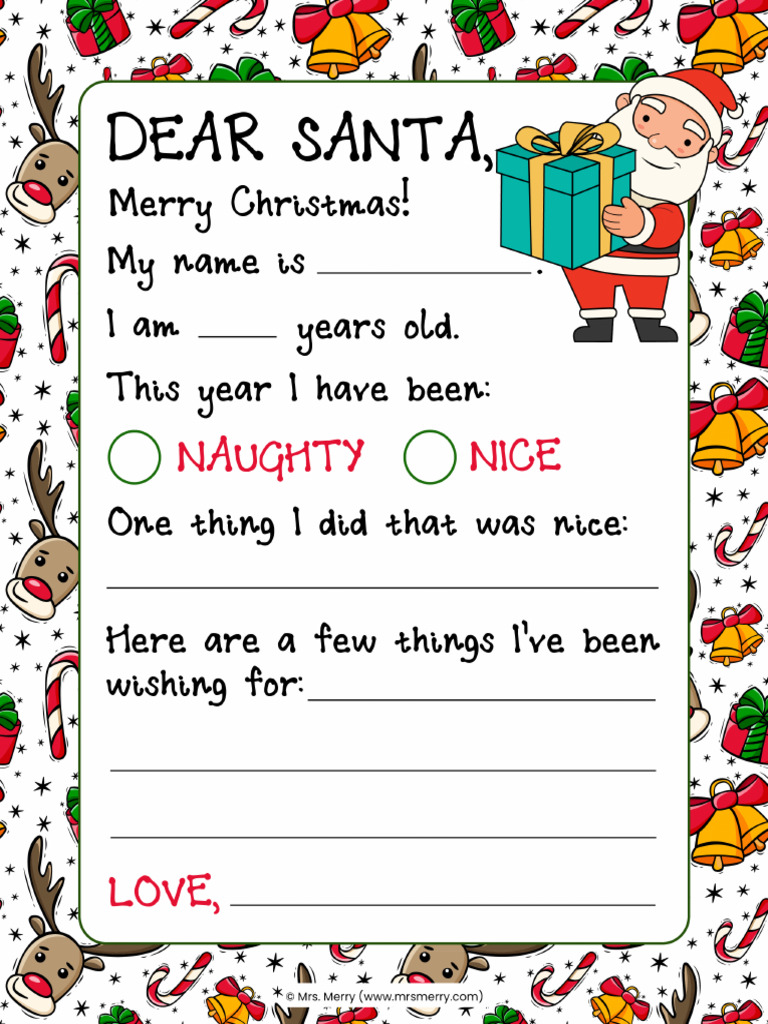 DEAR SANTA,
Merry Christmas!
My name is ______________.
I am _____ years old.
This year I have been:
NAUGHTY NICE
One thing I did that was nice:
Here are a few things I've been
wishing for:
LOVE,
© Mrs. Merry (www.mrsmerry.com)